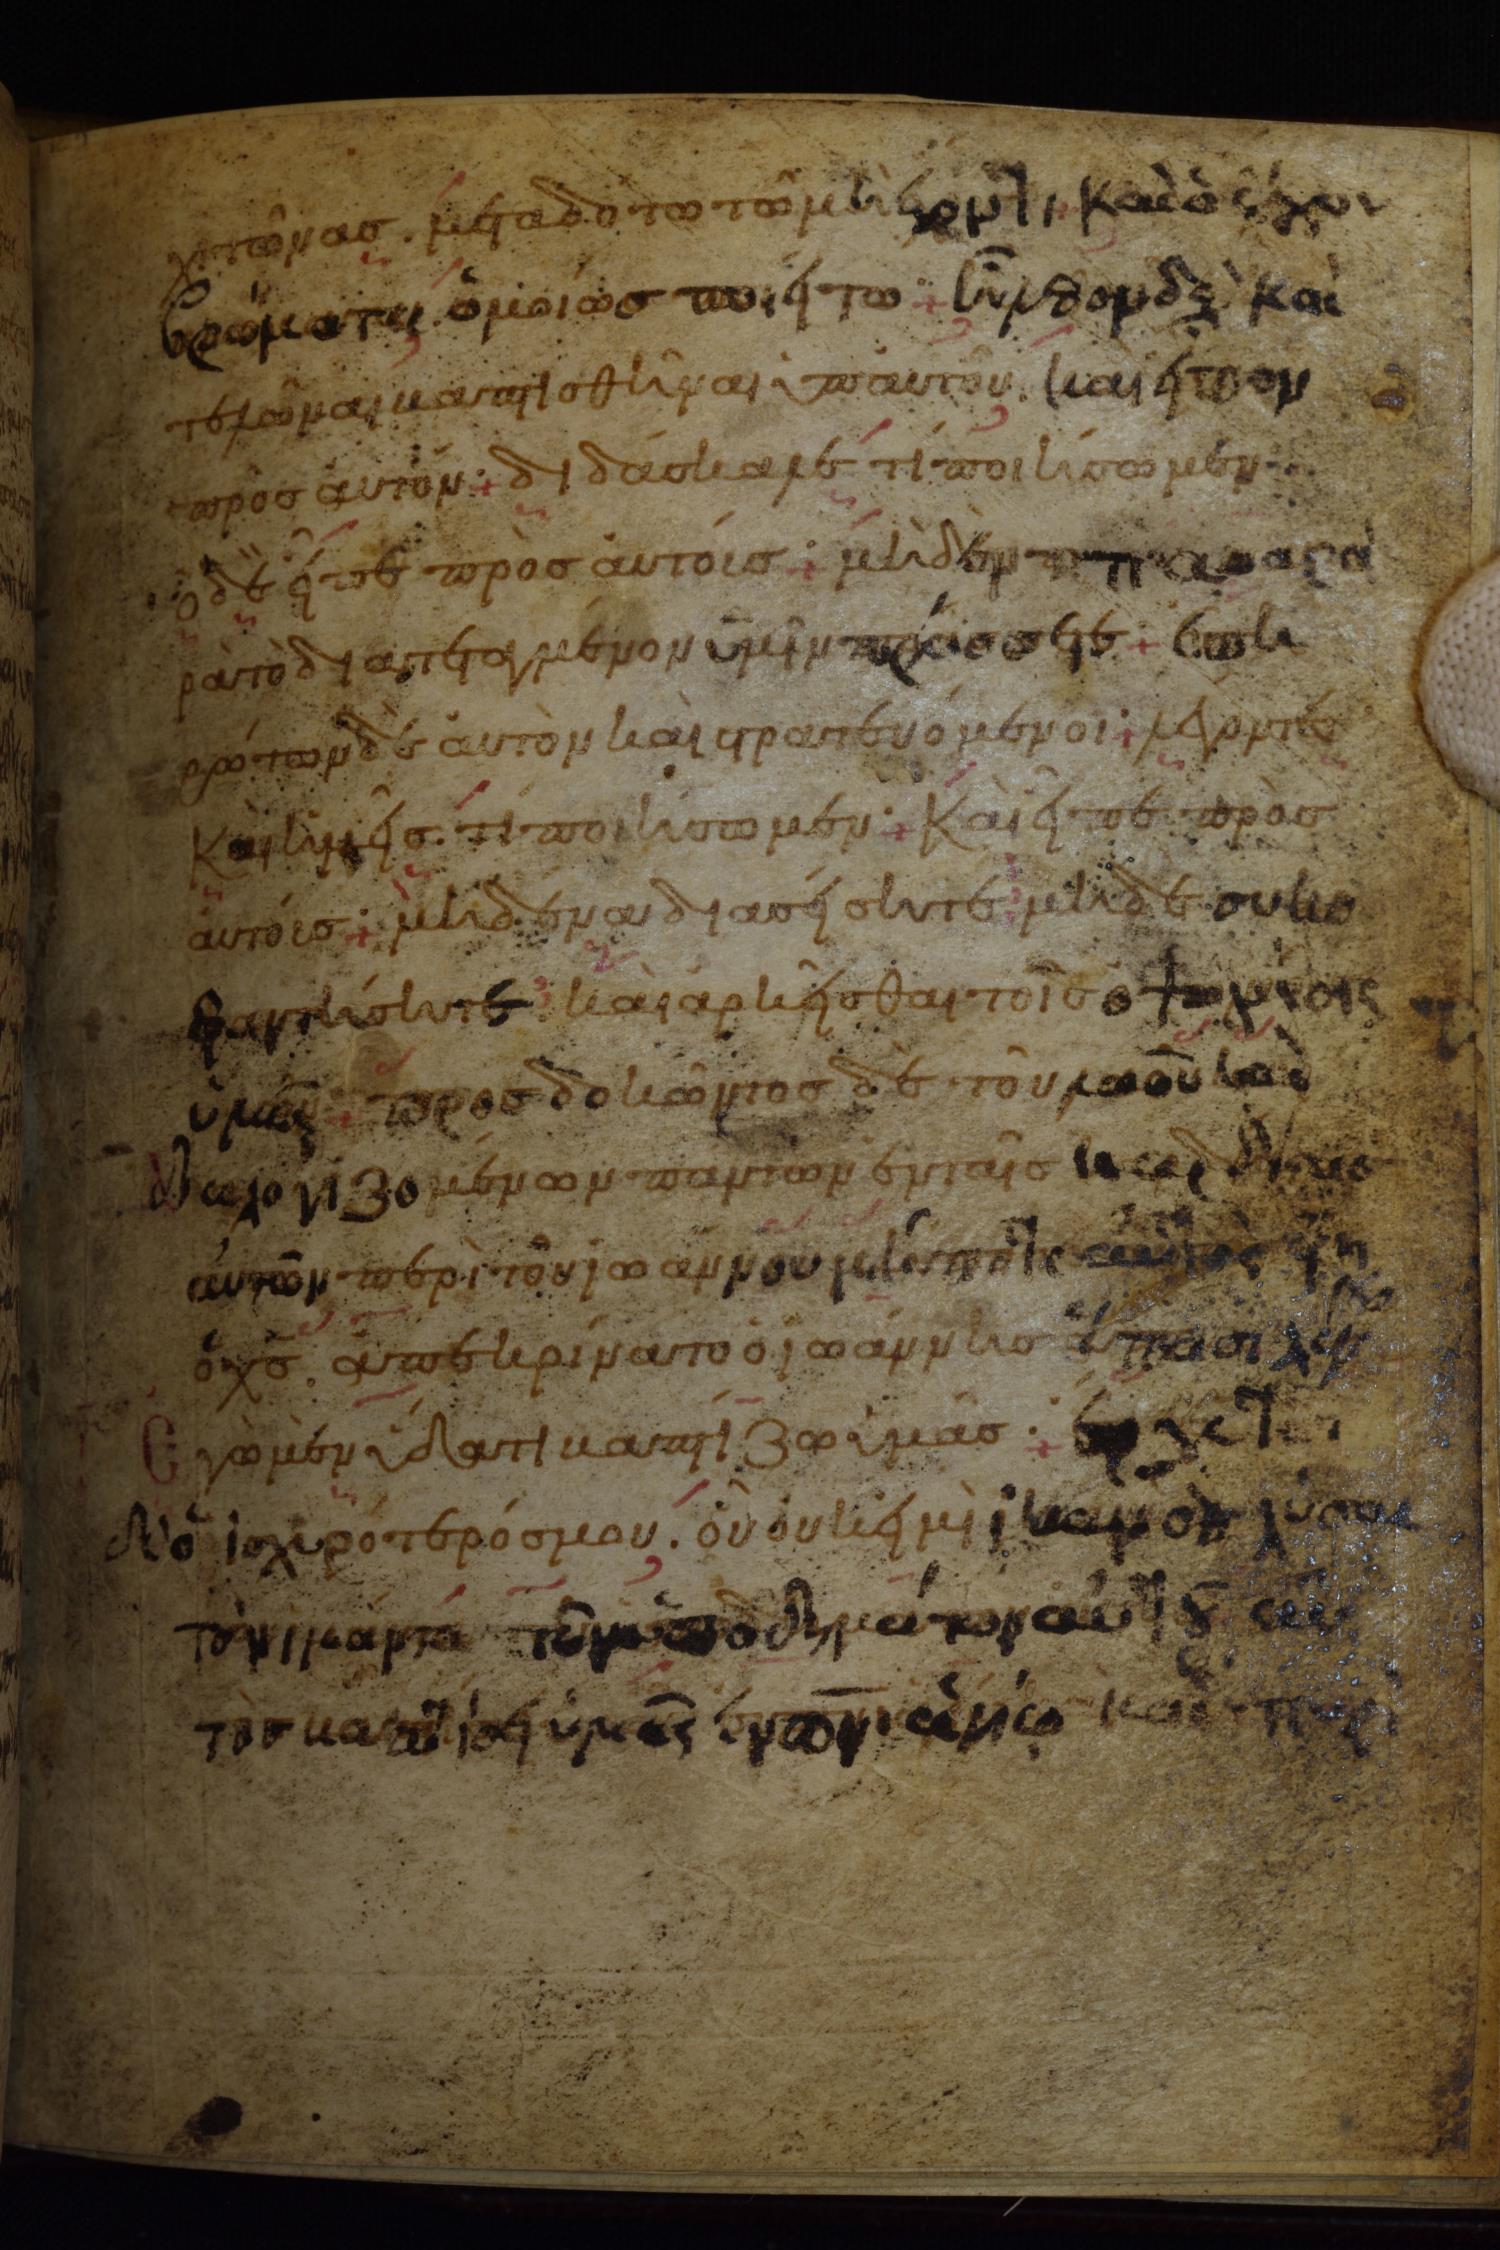 χιτῶνας. μεταδότω τῶ μὴ ἔχοντι, καὶ ὁ ἔχων
βρώματα, ὁμοίως ποιήτω + ἦλθον δὲ καὶ
τελῶναι βαπτισθῆναι ὑπ αυτοῦ. καὶ ἦπον
πρὸς ἀυτόν + διδάσκαλε τί ποιήσωμεν
ὁ δὲ ἦπε πρὸς ἀυτόις + μηδὲν παρα
ρὰ τὸ διατεταγμένον ὑμῖν πράσσετε + επη
ρώτων δὲ ἀυτὸν καὶ στρατευόμενοι + λέγοντες
Καὶ ἡμῆς. τί ποιήσωμεν + Καὶ ἦπε πρὸς
ἀυτόις + μηδέναν διασήσητε μηδὲ συκο
φαντήσητε καὶ ἀρκῆσθαι τοῖς ὀψωνίοις
ὑμῶν + προσδοκῶντος δὲ τοῦ λαοῦ καὶ
διαλογιζομένων παντων ἐν ταῖς καρδίαις
ἀυτῶν περὶ τοῦ ἰωάννου μήποτε αυτὸς εἴη
ὁ χς. ἀπεκρίνατο ὁ ἰωάννης ἅπασι λέγων
Εγὼ μὲν ὕδατι βαπτίζω ὑμάς + ἔρχεται
δὲ ὁ ἰσχυρότερός μου. οὗ ουκ ημὶ ἱκανὸς λύσαι
τὸν ιμάντα τῶν ὑποδημάτων αυτοῦ αυ
τὸς βαπτίσει ὑμᾶς ἐν πνι ἁγίω καὶ πυρὶ